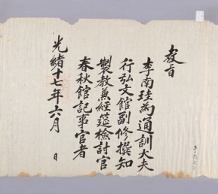 教旨
李南珪為通訓大夫
行弘文館副修撰知
製教兼經筵檢討官
春秋館記事官者
光緒十七年六月 日